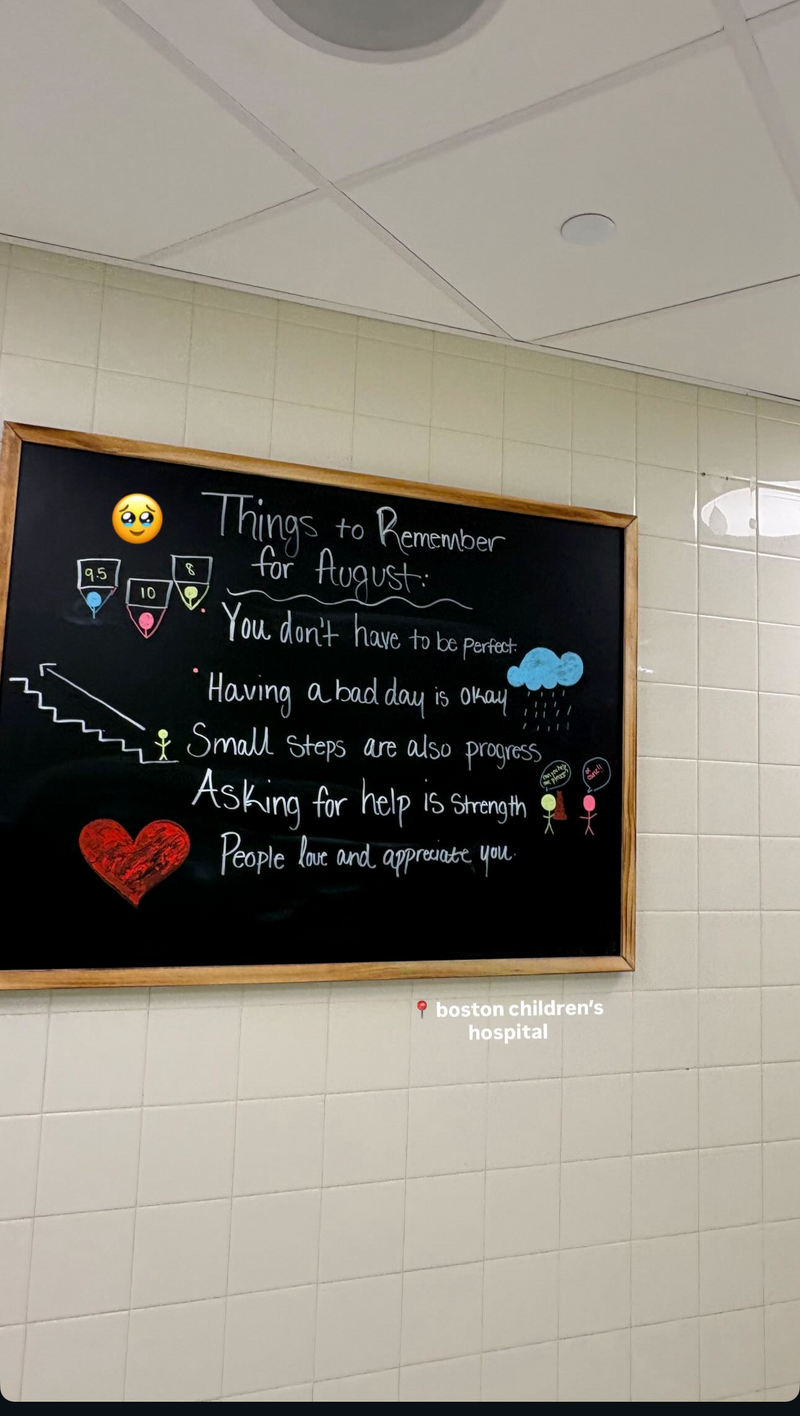 Things to Remember
for August:
9.5
10
8
You don't have to be perfect.
Having a bad day is okay
Small steps are also progress
Asking for help is strength
People love and appreciate you.
📍 boston children's
hospital